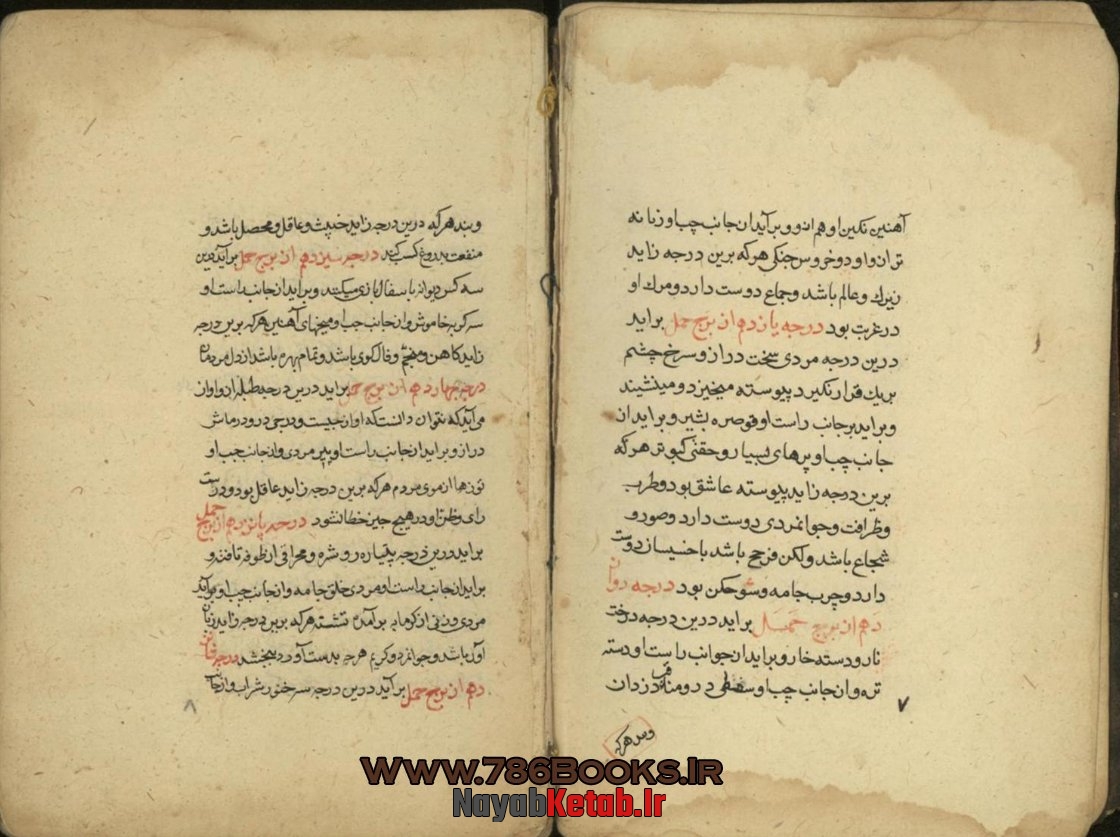 آهنین نکین او هم انو و برآید از جانب چپ او زنا نه
تران و او دو خروس جنکی هرکه برین درجه زاید
زیرک و عالم باشد و جماع دوست دارد و مرک او
در غربت بود درجه یازدهم از برج حمل براید
درین درجه مردی سخت دراز و سرخ چشم
بریک قرار نکیرد پیوسته میخیزد و مینشیند
و براید بر جانب راست او قوصره بشیر و براید از
جانب چپ او پرهای بسیار و حقنی کبوتر هرکه
برین درجه زاید پیوسته عاشق بود و طرب
و ظرافت و جوانمردی دوست دارد و صور و
شجاع باشد ولکن فرجح باشد با خسیسان دوست
دارد و چرب جامه و شوخکن بود درجه دوان
دهم از برج حمل براید درین درجه درخت
نار و دسته خار و براید از جوانب راست او دسته
تره و از جانب چپ او سفطی در و متاع دزدان
۷
وبند هرکه
وبند هرکه درین درجه زاید خبیث و عاقل و محصل باشد و
منفعت بدروغ کسب کند درجه سیزدهم از برج حمل برآید درین
سه کس دیوانه با سفال بازی میکنند و براید از جانب راست او
سه کربه خاموش و از جانب چپ او میخهای آهنین هرکه برین درجه
زاید کاهن و منجم و فالکوی باشد و تمام بهره باشد از دل مردمان
درجه چهاردهم از برج حمل براید درین درجه طبله از و اواز
می آید که نتوان دانست که اواز چیست و درجی درو درماش
دراز و براید از جانب راست او پیر مردی و از جانب چپ او
توزها از موی مردم هرکه برین درجه زاید عاقل بود و درست
رای و ظن او در هیچ چیز خطا نشود درجه پانزدهم از برج حمل
براید درین درجه پتیاره رو شره و محراقی از طوفه تافته و
براید از جانب راست او مردی خلق جامه و از جانب چپ او برآید
مردی و زنی از کرمابه برآمده نشسته هرکه برین درجه زاید زبان
آور باشد و جوانمرد و کریم هرچه بدست آورد ببخشد درجه شانز
دهم از برج حمل برآید درین درجه سر خنور شراب و از جا
۸
WWW.786Books.IR
NayabKetab.Ir